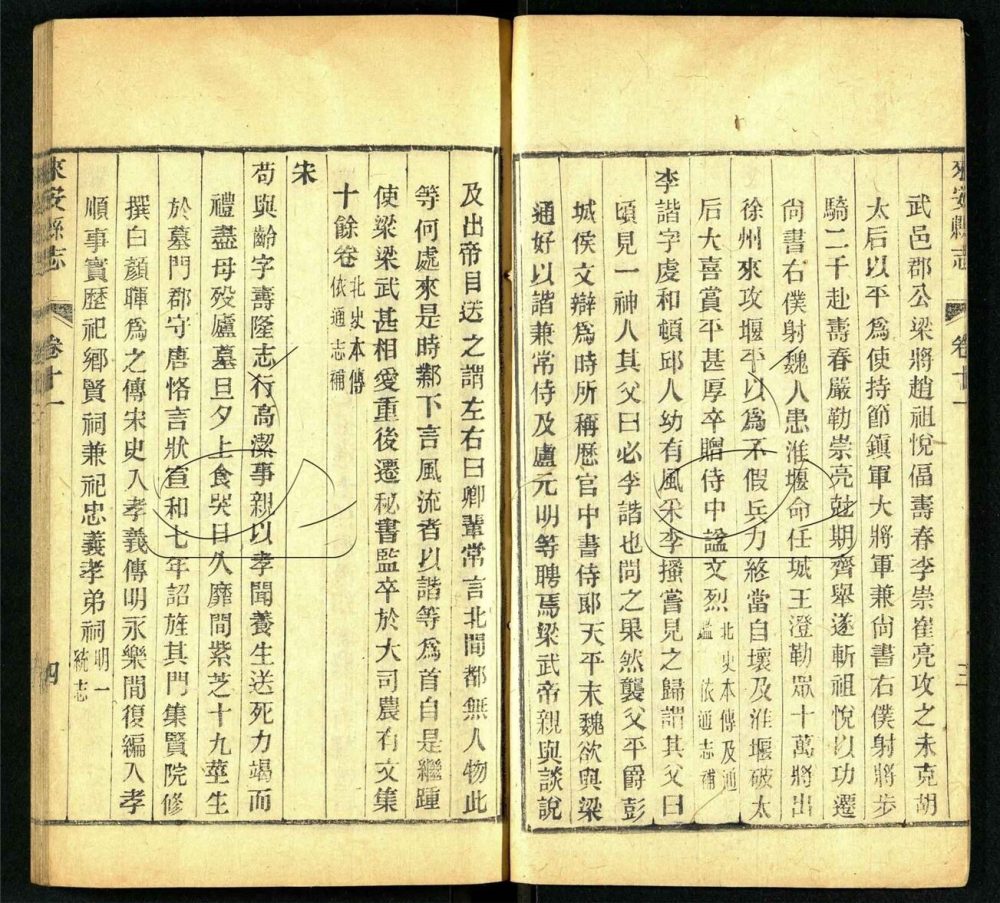 來安縣志 卷十一 三
武邑郡公梁將趙祖悅偪壽春李崇崔亮攻之未克胡
太后以平爲使持節鎭軍大將軍兼尙書右僕射將步
騎二千赴壽春嚴勒崇亮尅期齊舉遂斬祖悅以功遷
尙書右僕射魏人患淮堰命任城王澄勒眾十萬將出
徐州來攻堰平以爲不假兵力終當自壞及淮堰破太
后大喜賞平甚厚卒贈侍中諡文烈北史本傳及通
鑑依通志補
李諧字虔和頓邱人幼有風采李搔嘗見之歸謂其父曰
頃見一神人其父曰必李諧也問之果然襲父平爵彭
城侯文辯爲時所稱歷官中書侍郎天平末魏欲與梁
通好以諧兼常侍及盧元明等聘焉梁武帝親與談說
及出帝目送之謂左右曰卿輩常言北間都無人物此
等何處來是時鄴下言風流者以諧等爲首自是繼踵
使梁梁武甚相愛重後遷秘書監卒於大司農有文集
十餘卷北史本傳
依通志補
宋
苟與齡字壽隆志行高潔事親以孝聞養生送死力竭而
禮盡母歿廬墓旦夕上食哭日久靡間紫芝十九莖生
於墓門郡守唐恪言狀宣和七年詔旌其門集賢院修
撰白顏暉爲之傳宋史入孝義傳明永樂間復編入孝
順事實歷祀鄉賢祠兼祀忠義孝弟祠明一
統志
來安縣志 卷十一 四